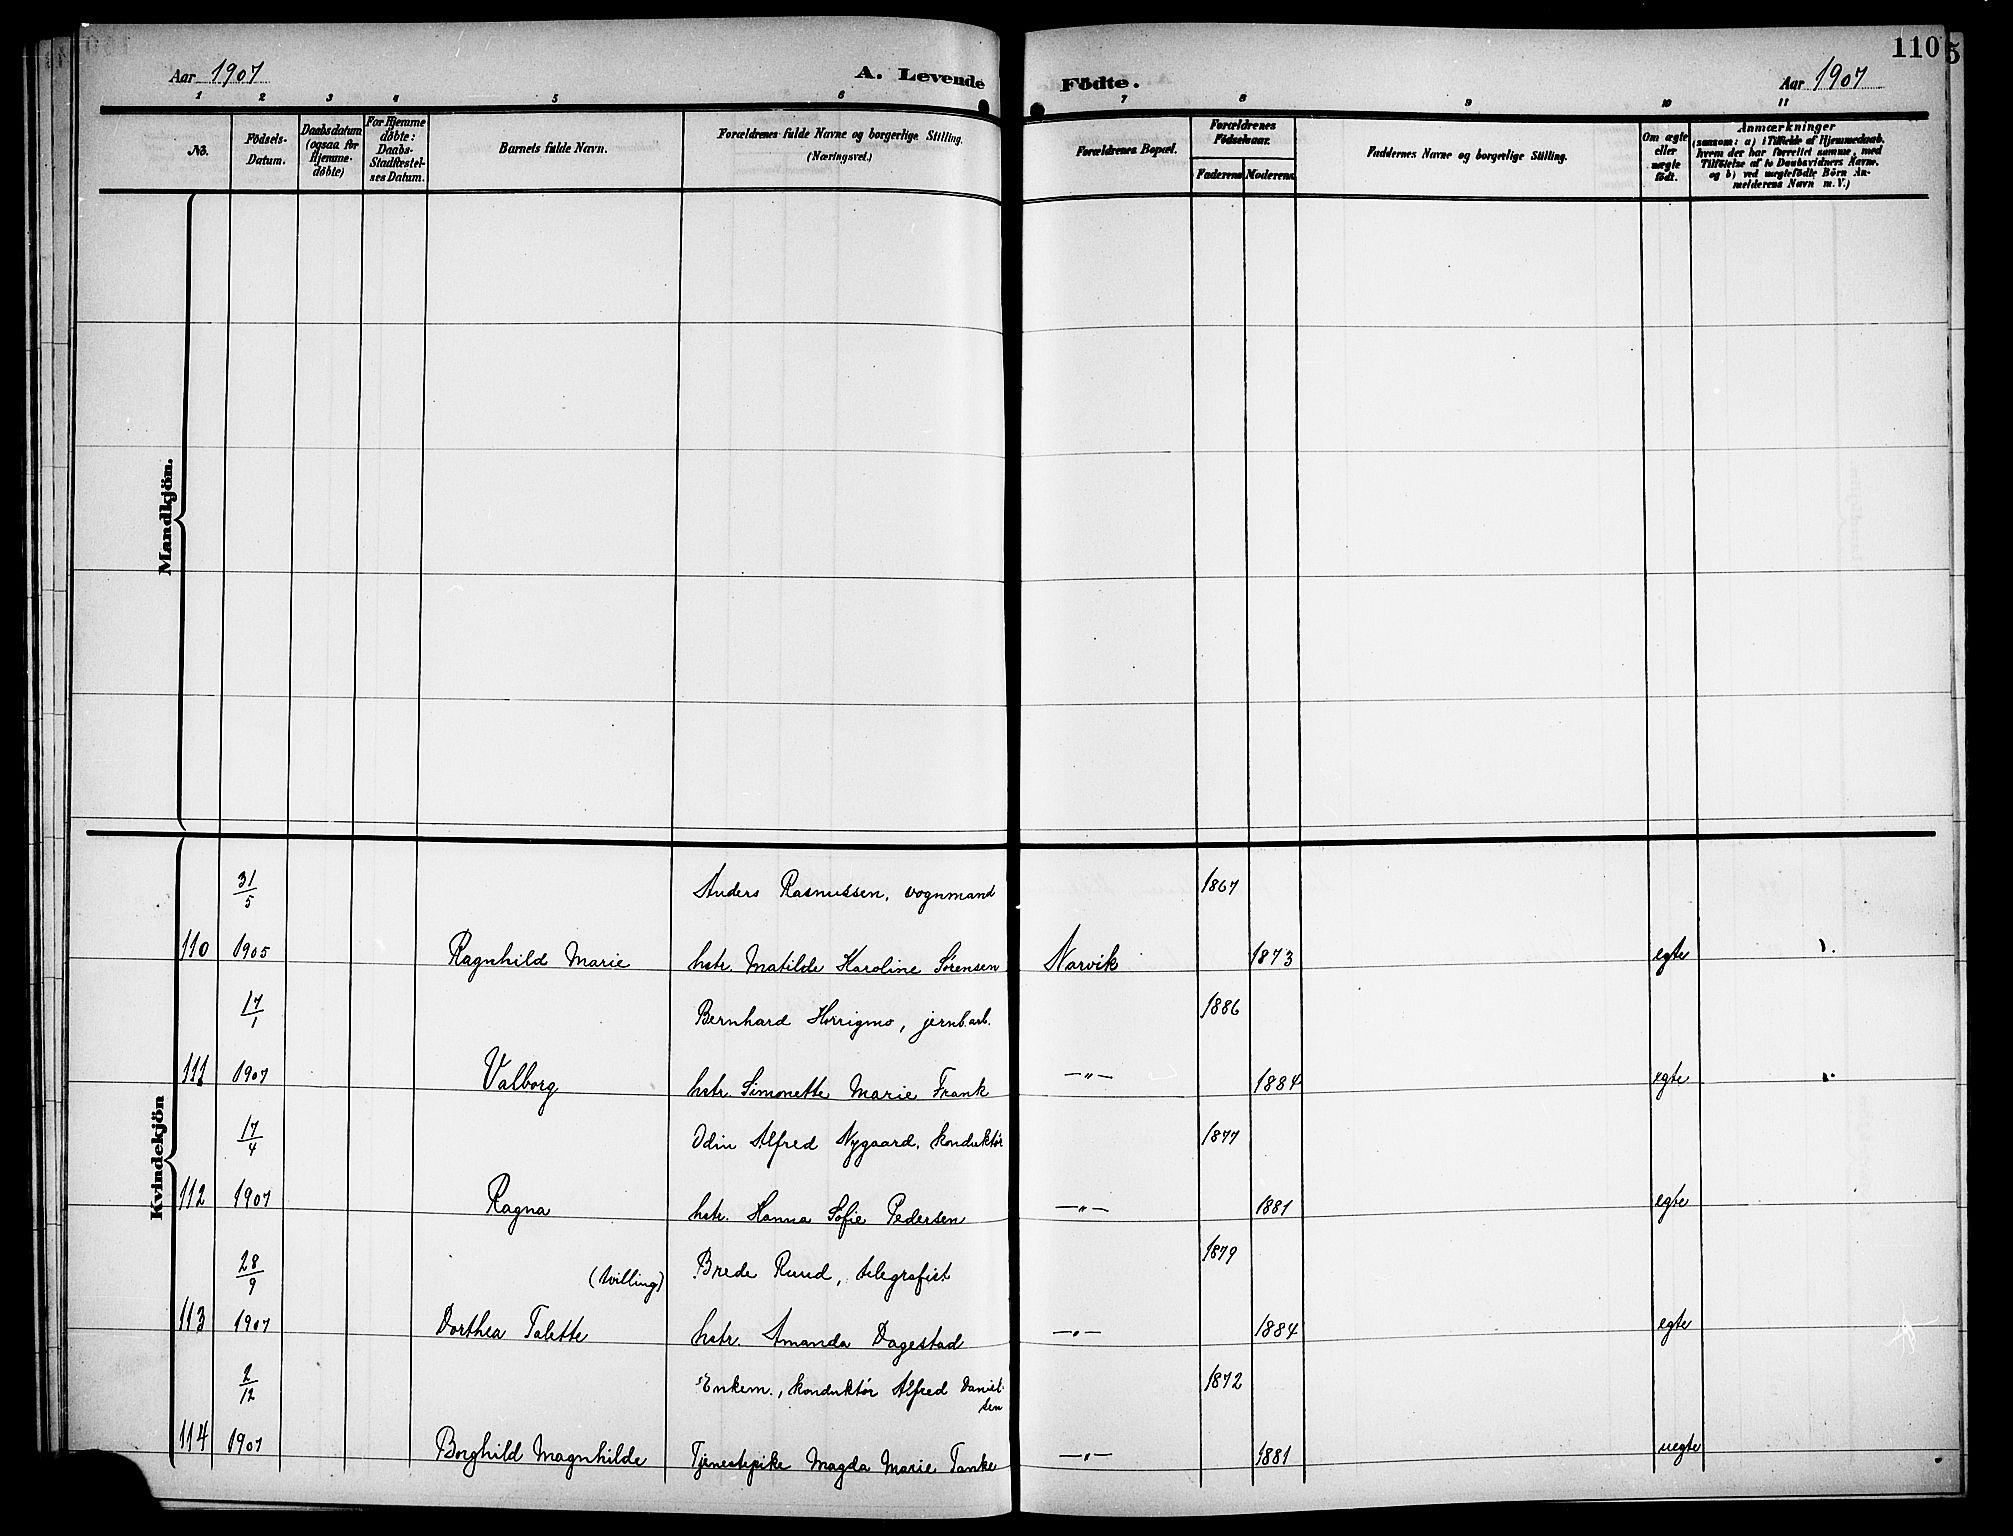 110
5
Aar 1907
A. Levende Födte.
Aar 1907
1 2 3 4 5 6 7 8 9 10 11
No.
Födsels-
Datum.
Daabsdatum
(ogsaa for
Hjemme-
döbte)
For Hjemme
döbte:
Daabs-
Stadfæstel-
ses Datum.
Barnets fulde Navn.
Forældrenes fulde Navne og borgerlige Stilling.
(Næringsvei.)
Forældrenes Bopæl.
Forældrenes
Födselsaar.
Faderens Moderens
Faddernes Navne og borgerlige Stilling.
Om ægte
eller
uægte
födt.
Anmærkninger
(saasom: a) i Tilfælde af Hjemmedaab,
hvem der har forrettet samme, med
Tilföielse af to Daabsvidners Navne,
og b) ved uægtefödte Börn An-
melderens Navn m. V.)
Mandkjön.
Kvindekjön
31/5 Anders Rasmussen, vognmand 1867
110 1905 Ragnhild Marie hstr. Matilde Karoline Sørensen Narvik 1873 egte
17/1 Bernhard Horrigmo, jernb.arb. 1886
111 1907 Valborg hstr. Simonette Marie Frank —„— 1884 egte
17/4 Odin Alfred Nygaard, konduktør 1877
112 1907 Ragna hstr. Hanna Sofie Pedersen —„— 1881 egte
28/9 (tvilling) Brede Ruud, telegrafist 1879
113 1907 Dorthea Talette hstr. Amanda Dagestad —„— 1884 egte
2/12 Enkem., konduktør Alfred Daniel-
sen 1872
114 1907 Borghild Magnhilde Tjenestepike Magda Marie Tanke —„— 1881 uegte